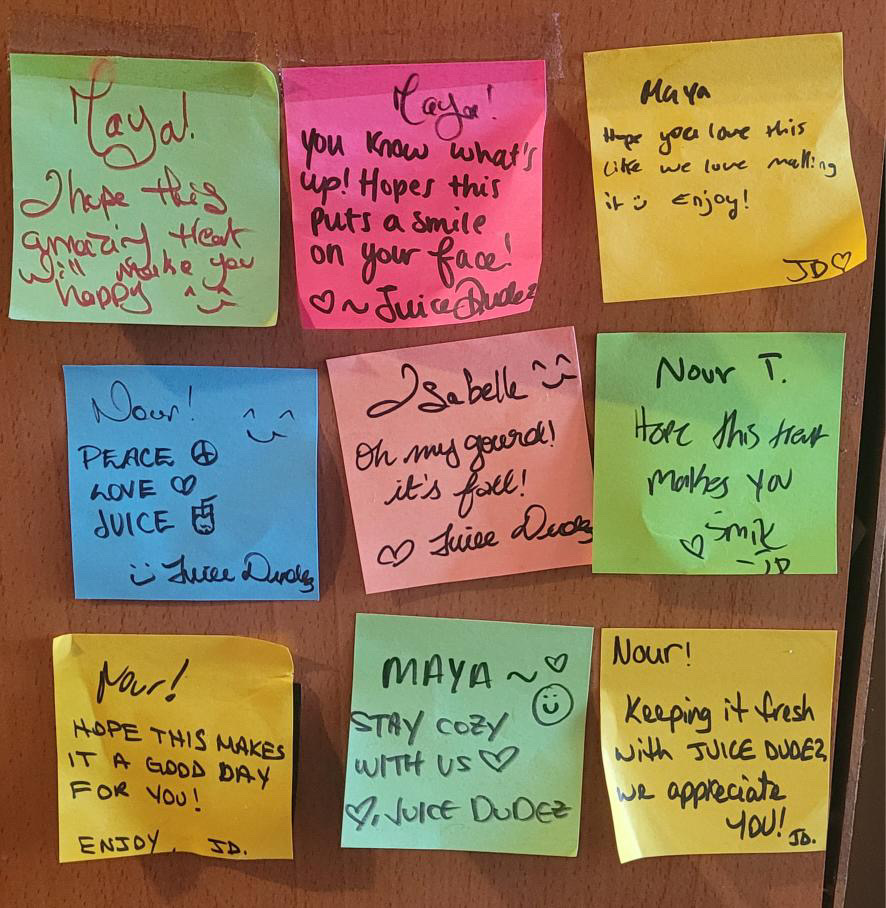 Maya!
I hope this
amazing treat
will make you
happy
Maya!
You know what's
up! Hopes this
puts a smile
on your face!
~ Juice Dudez
Maya
Hope you love this
like we love making
it Enjoy!
JD
Nour!
PEACE
LOVE
JUICE
Juice Dudez
Isabelle
Oh my gourd!
it's fall!
Juice Dudez
Nour T.
Hope this treat
makes you
smile
-JD
Nour!
HOPE THIS MAKES
IT A GOOD DAY
FOR YOU!
ENJOY. JD.
MAYA ~
STAY COZY
WITH US
, JUICE DUDEZ
Nour!
Keeping it fresh
with JUICE DUDEZ
we appreciate
YOU! JD.